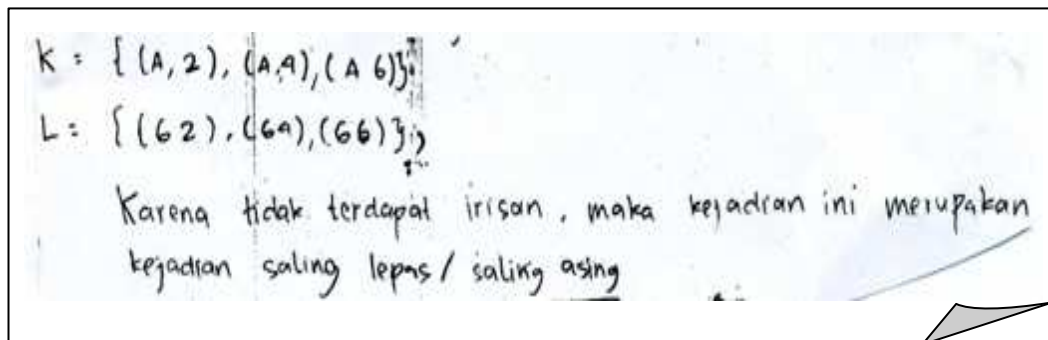 K = { (A, 2), (A,4), (A 6)}
L = { (6 2), (64), (66) }
Karena tidak terdapat irisan, maka kejadian ini merupakan
kejadian saling lepas / saling asing